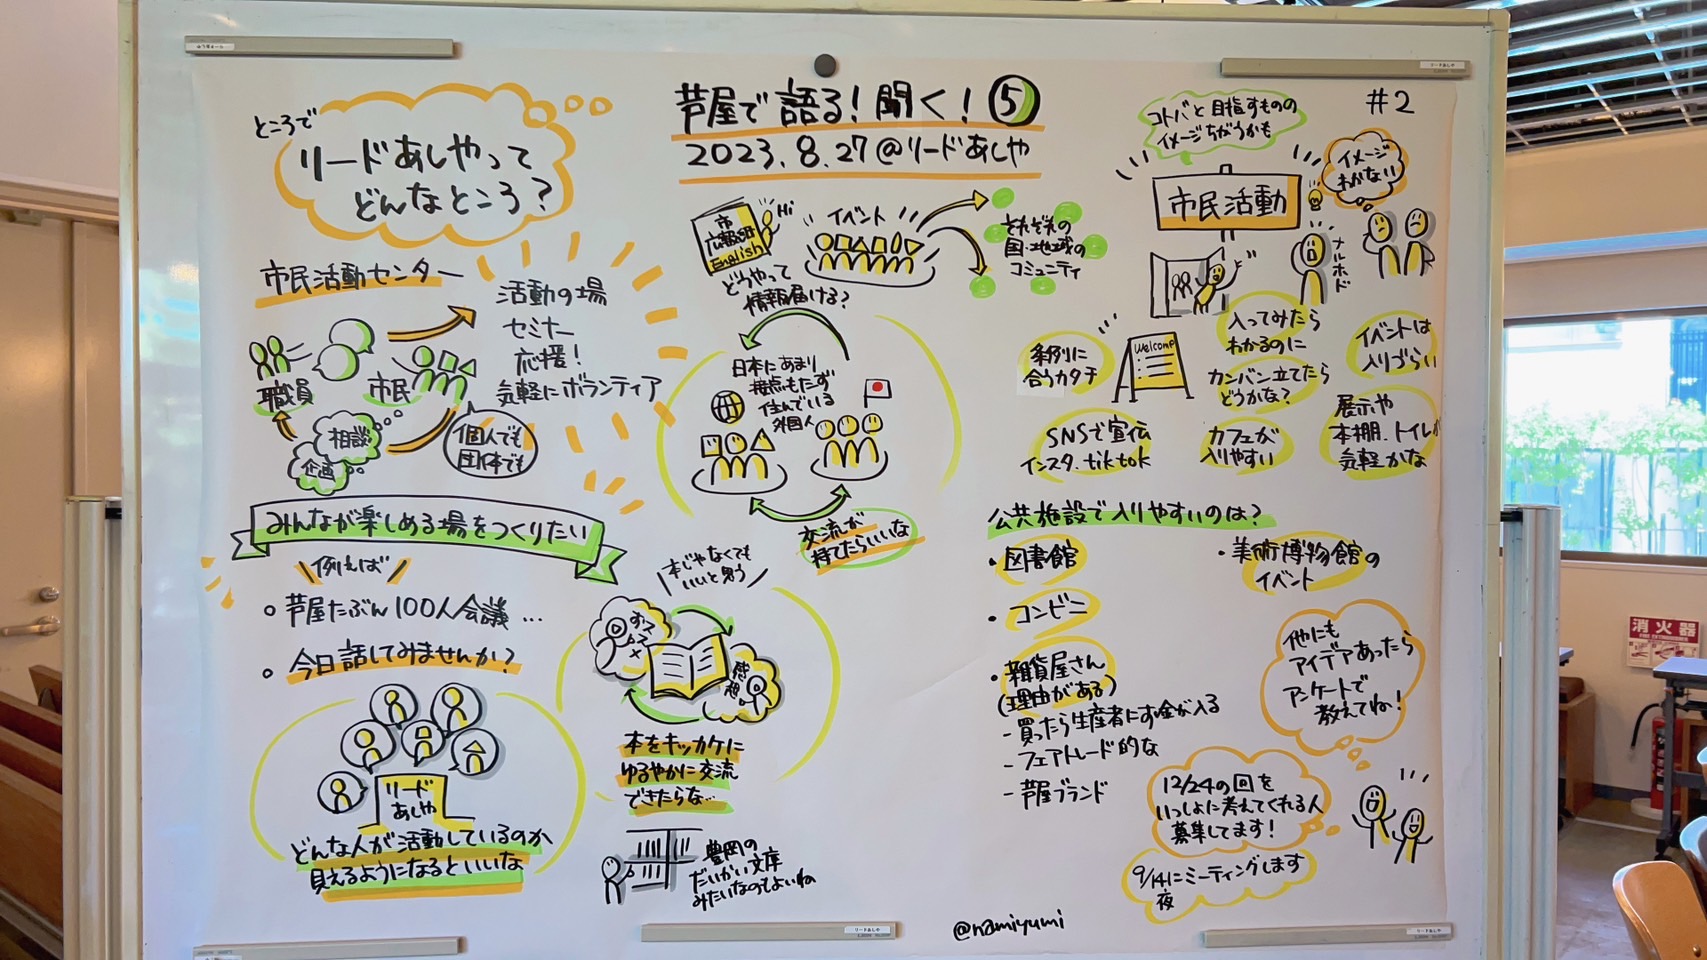 芦屋で語る!聞く!⑤
2023.8.27@リードあしや
#2
ところで
リードあしやって
どんなところ?
市民活動センター
活動の場
セミナー
応援!
気軽にボランティア
職員
市民
相談
企画
個人でも
団体でも
みんなが楽しめる場をつくりたい
例えば
芦屋たぶん100人会議...
今日話してみませんか?
リード
あしや
どんな人が活動しているのか
見えるようになるといいな
市
広報誌
English
Hi
どうやって
情報届ける?
イベント
それぞれの
国・地域の
コミュニティ
日本にあまり
接点もたず
住んでいる
外国人
交流が
持てたらいいな
本じゃなくても
いいと思う
オススメ
感想
本をキッカケに
ゆるやかに交流
できたらな...
豊岡の
だいかい文庫
みたいなのもよいね
コトバと目指すものの
イメージちがうかも
市民活動
イメージ
わかない
ナルホド
入ってみたら
わかるのに
カンバン立てたら
どうかな?
イベントは
入りづらい
条例に
合うカタチ
Welcome
SNSで宣伝
インスタ.tiktok
カフェが
入りやすい
展示や
本棚.トイレが
気軽かな
公共施設で入りやすいのは?
・図書館
・コンビニ
・雑貨屋さん
(理由がある)
-買ったら生産者にお金が入る
-フェアトレード的な
-芦屋ブランド
・美術博物館の
イベント
他にも
アイデアあったら
アンケートで
教えてね!
12/24の回を
いっしょに考えてくれる人
募集してます!
9/14にミーティングします
夜
@namiyumi
消火器
FIRE EXTINGUISHER
リードあしや
リードあしや
リードあしや